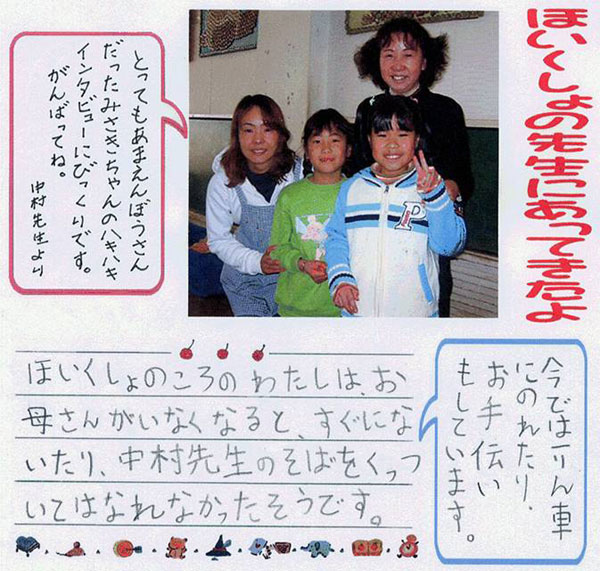 ほいくしょの先生にあってきたよ
とってもあまえんぼうさん
だったみさきちゃんのハキハキ
インタビューにびっくりです。
がんばってね。
中村先生より
P
ほいくしょのころのわたしは、お
母さんがいなくなると、すぐにな
いたり、中村先生のそばをくっつ
いてはなれなかったそうです。
今では一りん車
にのれたり、
お手伝い
もしています。